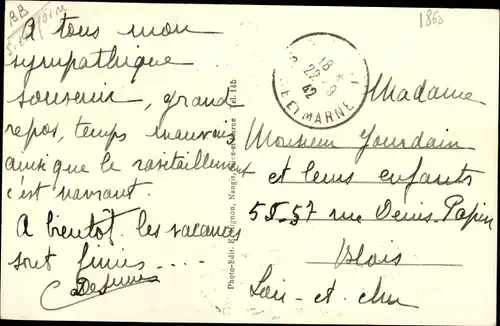 BB
1860
A tous mon
sympathique
souvenir, grand
repos, temps mauvais
ainsi que le ravitaillement
c'est navrant.
A bientot. les vacances
sont finies ....
18 *
22 - 9
42
ET MARNE
Madame
Monsieur Jourdain
et leurs enfants
55-57 rue Denis-Papin
Blois
Loir-et-cher
Photo-Edit. Nangis, Seine-et-Marne Tél. 145